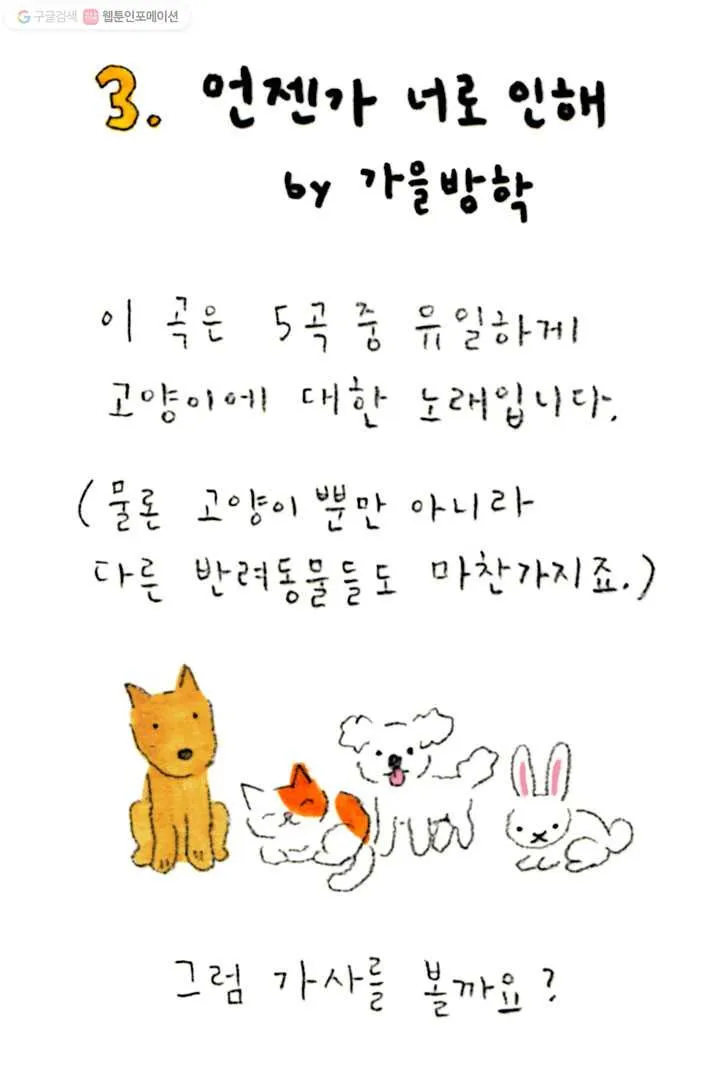 구글검색 웹툰인포메이션
3. 언젠가 너로 인해
by 가을방학
이 곡은 5곡 중 유일하게
고양이에 대한 노래입니다.
(물론 고양이 뿐만 아니라
다른 반려동물들도 마찬가지죠.)
그럼 가사를 볼까요?